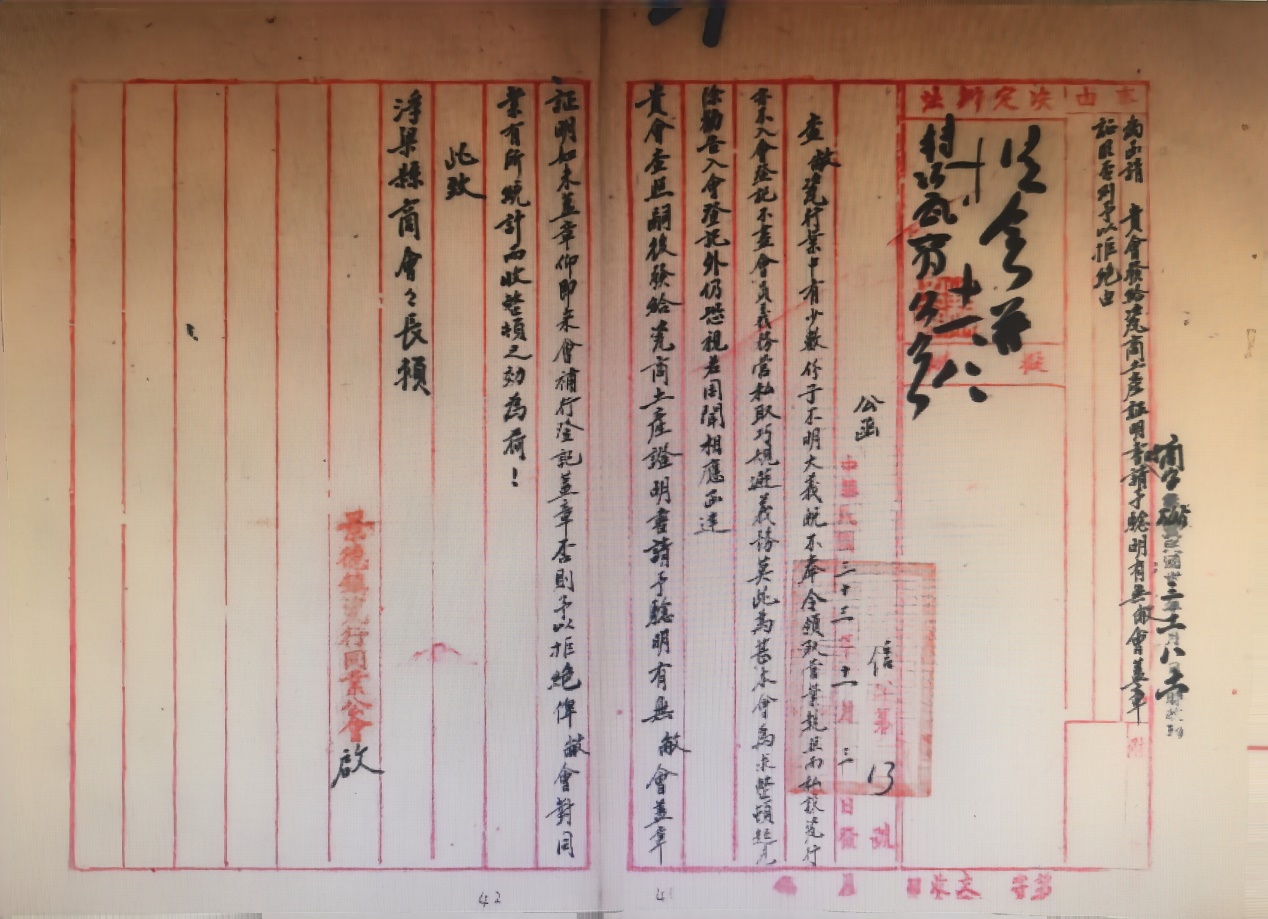 為函請　貴會發給瓷商土產証明書請予驗明有無敝會蓋章
証明否則予以拒絕由
事由
決定辦法
擬辦
附
公函
信字第13號
中華民國三十三年十一月三日發
查敝瓷行業中有少數份子不明大義既不奉令領取營業執照而私設瓷行
亦不入會登記不盡會員義務營私取巧規避義務莫此為甚本會為求整頓起見
除勸告入會登記外仍恐視若罔聞相應函達
貴會查照嗣後發給瓷商土產證明書請予驗明有無敝會蓋章
証明如未蓋章仰即來會補行登記蓋章否則予以拒絕俾敝會對同
業有所統計而收整頓之効為荷！
此致
浮梁縣商會々長頓
景德鎮瓷行同業公會啟
42